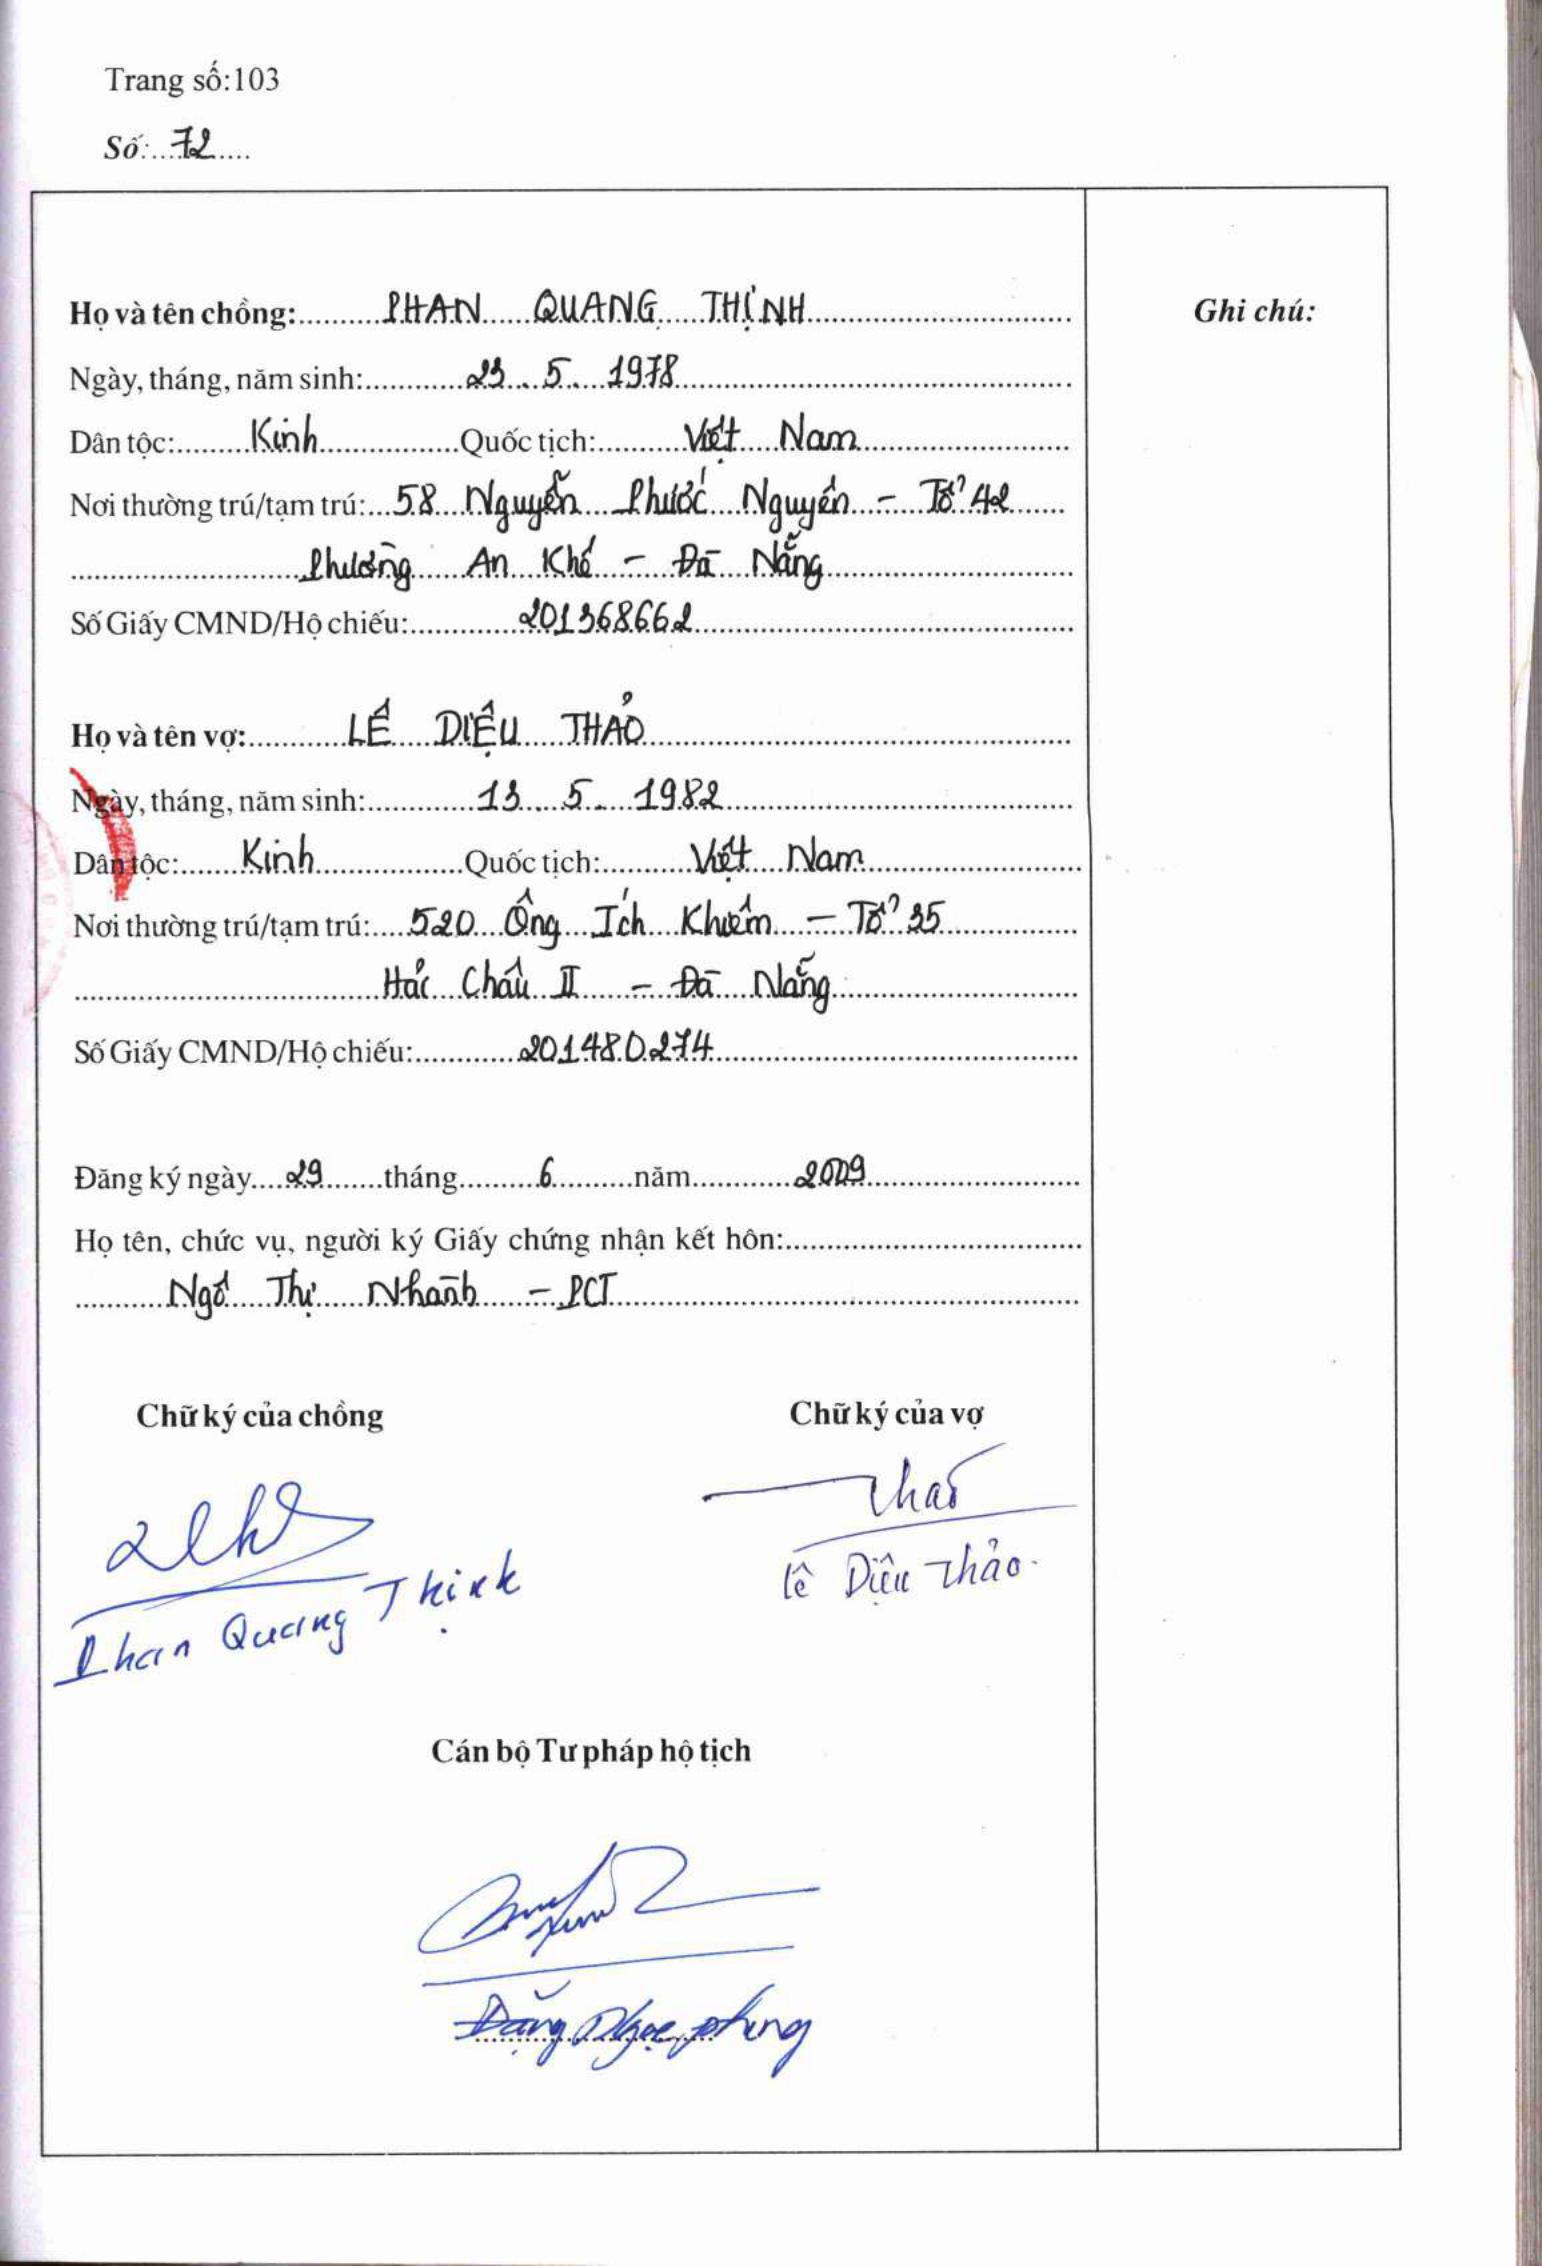 Trang số:103
Số: 72
Họ và tên chồng: PHAN QUANG THỊNH
Ghi chú:
Ngày, tháng, năm sinh: 23 . 5 . 1978
Dân tộc: Kinh Quốc tịch: Việt Nam
Nơi thường trú/tạm trú: 58 Nguyễn Phước Nguyên - Tổ 42
Phường An Khê - Đà Nẵng
Số Giấy CMND/Hộ chiếu: 201368662
Họ và tên vợ: LÊ DIỆU THẢO
Ngày, tháng, năm sinh: 13 . 5 . 1982
Dân tộc: Kinh Quốc tịch: Việt Nam
Nơi thường trú/tạm trú: 520 Ông Ích Khiêm - Tổ 35
Hải Châu II - Đà Nẵng
Số Giấy CMND/Hộ chiếu: 201480274
Đăng ký ngày 29 tháng 6 năm 2009
Họ tên, chức vụ, người ký Giấy chứng nhận kết hôn:
Ngô Thị Nhành - PCT
Chữ ký của chồng Chữ ký của vợ
Thảo
Phan Quang Thịnh Lê Diệu Thảo
Cán bộ Tư pháp hộ tịch
Đặng Ngọc Phụng